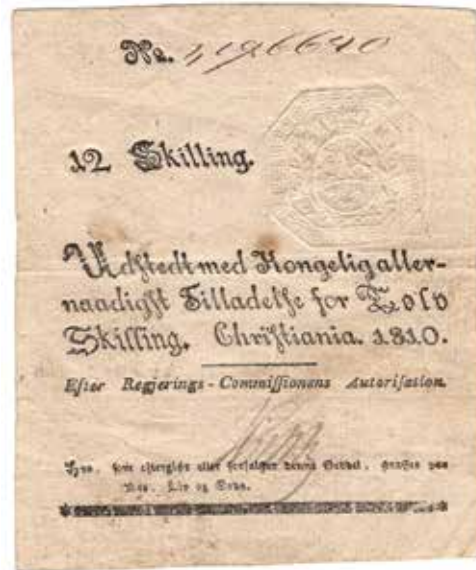 No. 4196640
12 Skilling.
Udstedt med Kongelig aller-
naadigst Tilladelse for Tolv
Skilling. Christiania. 1810.
Efter Regjerings-Commissionens Autorisation.
Hvo, som eftergiør eller forfalsker denne Seddel, straffes paa
Ære, Liv og Gods.